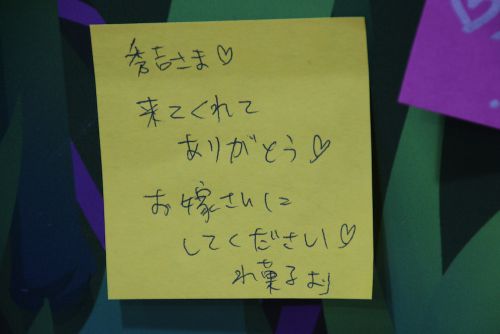 秀吉さま♡
来てくれて
ありがとう♡
お嫁さんに
してください♡
れ菓子より